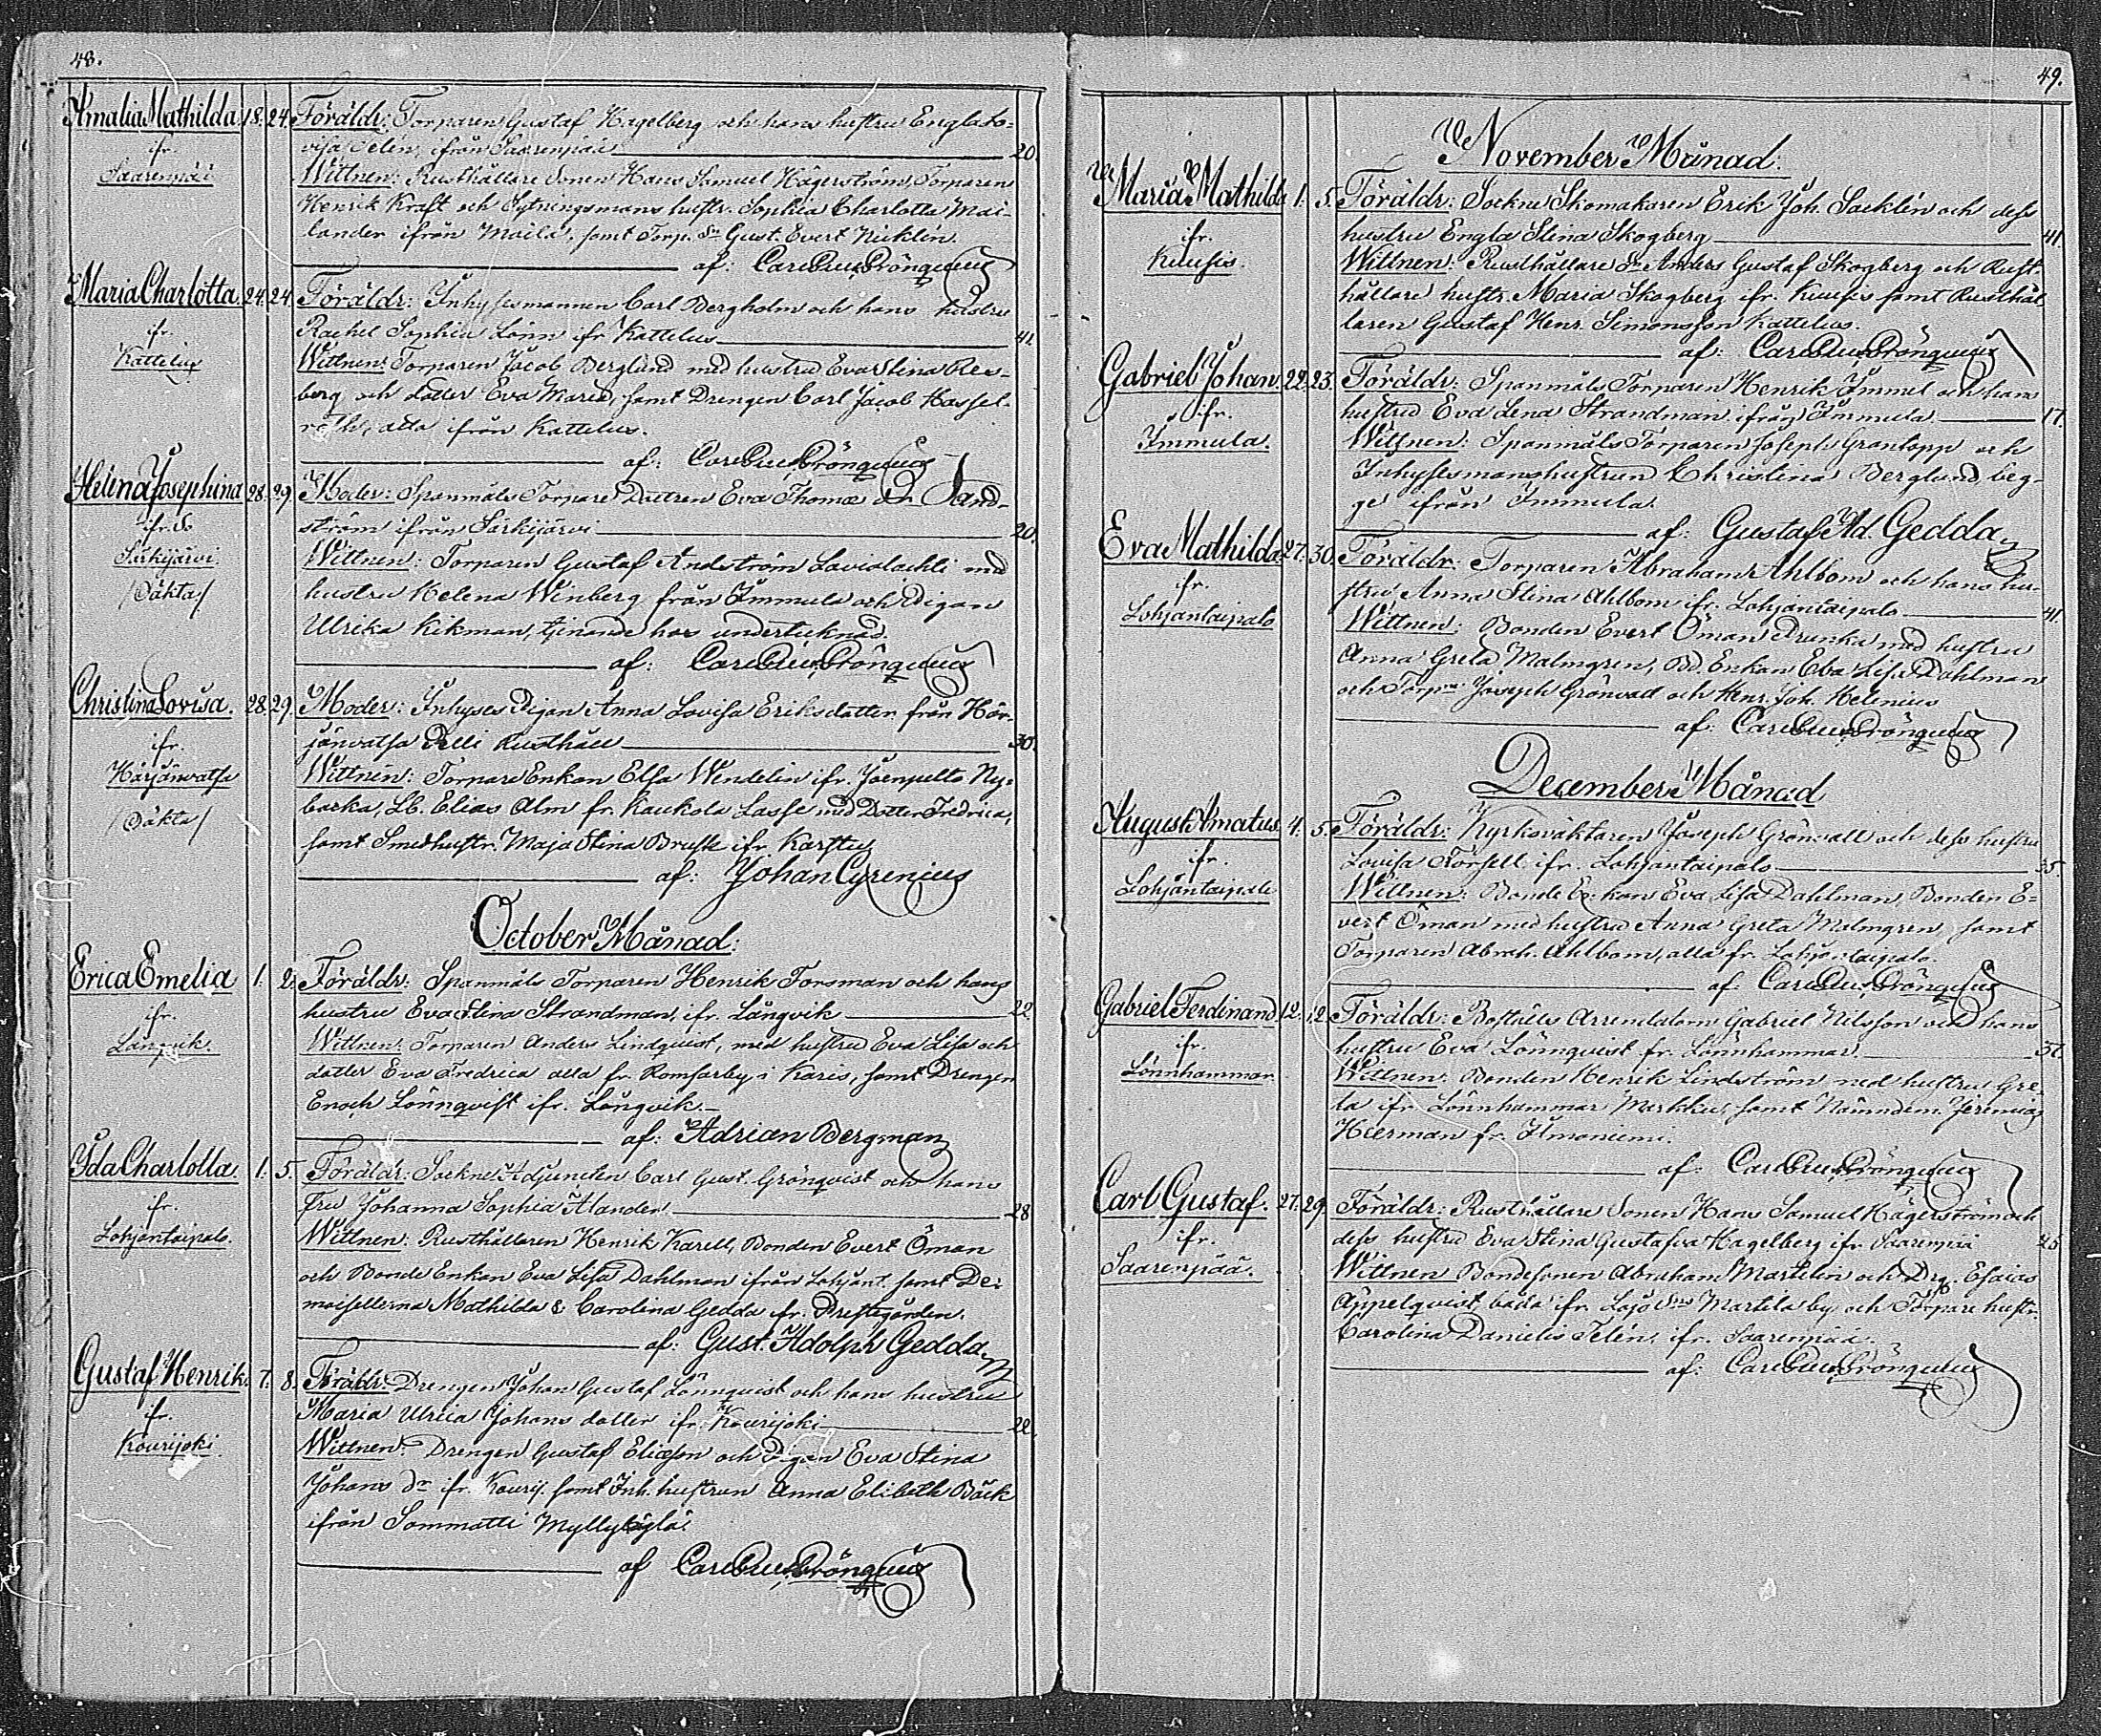 48.
Amalia Mathilda 18. 24. Föräldr: Torparen Gustaf Hagelberg och hans hustru Engla Lo-
ifr. visa Telén, ifrån Saarenpää 20.
Saarenpää Wittnen: Rusthållare Sonen Hans Samuel Hägerström, Torparen
Henrik Kraft och Sytningsmans hustr. Sophia Charlotta Mai-
lander ifrån Maila, samt Torp. Sn Gust. Evert Nicklén.
af:
Maria Charlotta. 24. 24. Föräldr: Inhysesmannen Carl Bergholm och hans hustru
ifr. Rachel Sophia Lönn ifr Kattelus 41.
Kattelus Wittnen: Torparen Jacob Berglund med hustru Eva Stina Res-
berg och dotter Eva Maria, samt Drengen Carl Jacob Hassel-
alla ifrån Kattelus.
af:
Helena Josephina 28. 29. Moder: Spanmåls Torpare Dottren Eva Thomæ Dr Sand-
ifr. ström ifrån Särkijärvi 20.
Särkijärvi. Wittnen: Torparen Gustaf Andström med
/Oäkta/ hustru Helena Winberg från Immula och Pigan
Ulrika Kikman, tjenande hos undertecknad.
af:
Christina Lovisa. 28. 29. Moder: Inhyses Pigan Anna Lovisa Eriksdotter från Här-
ifr. jänvatsa Pelli Rusthåll 30.
Härjänvatsa Wittnen: Torpare Enkan Elsa Wendelin ifr. Joenpelto Ny-
/Oäkta/ backa, Lb. Elias Alm fr. Kaukola Lasse med Dotter Fredrica,
samt Smedhustr. Maja Stina Brusk ifr Karstu
af: Johan Cyrenius
October Månad:
Erica Emelia 1. 2. Föräldr: Spanmåls Torparen Henrik Forsman och hans
ifr. hustru Eva Stina Strandman, ifr. Långvik 22.
Långvik. Wittnen: Torparen Anders Lindqvist, med hustru Eva Lisa och
dotter Eva Fredrica alla fr. Romsarby i Karis, samt Drengen
Enoch Lönnqvist ifr. Långvik.
af: Adrian Bergman
Ida Charlotta. 1. 5. Föräldr: Sockne Adjuncten Carl Gust. Grönqvist och hans
ifr. fru Johanna Sophia Alander 28
Lohjantaipale. Wittnen: Rusthållaren Henrik Karell, Bonden Evert Öman
och Bonde Enkan Eva Lisa Dahlman ifrån Lohjant. samt De-
moisellerna Mathilda & Carolina Gedda ifr. Prestegården.
af: Gust. Adolph Gedda
Gustaf Henrik. 7. 8. Föräldr: Drengen Johan Gustaf Lönnqvist och hans hustru
ifr. Maria Ulrica Johans dotter ifr. Kourijoki 22.
Kourijoki Wittnen: Drengen Gustaf Eliæson och Pigan Eva Stina
Johans Dr ifr. Kourij. samt Inh. hustrun Anna Elibeth Bäck
ifrån Sommatti Myllykylä
af
49.
November Månad:
Maria Mathilda 1. 5. Föräldr: Sockne Skomakaren Erik Joh. Säcklén och dess
ifr. hustru Engla Stina Skogberg 41.
Kuusis. Wittnen: Rusthållare Sn Anders Gustaf Skogberg och Rust-
hållare hustr. Maria Skogberg ifr. Kuusis samt Rusthål
laren Gustaf Henr. Simonsson Kattelus.
af:
Gabriel Johan. 22. 23. Föräldr: Spanmåls Torparen Henrik Immel och hans
ifr. hustru Eva Lena Strandman ifrån Immula 17.
Immula. Wittnen: Spanmåls Torparen Joseph Grantopp och
Inhysesmanshustrun Christina Berglund, beg-
ge ifrån Immula.
af: Gustaf Ad. Gedda
Eva Mathilda 27. 30. Föräldr: Torparen Abraham Ahlbom och hans hu-
ifr. stru Anna Stina Ahlbom ifr. Lohjantaipale 41.
Lohjantaipale Wittnen: Bonden Evert Öman Prunka med hustru
Anna Greta Malmgren, Bd. Enkan Eva Lisa Dahlman
och Torpne Joseph Grönvad och Henr. Joh. Helenius
af:
December Månad
August Amatus. 4. 5. Föräldr: Kyrkoväktaren Joseph Grönvall och dess hustru
ifr. Lovisa Forsell ifr. Lohjantaipale 35.
Lohjantaipale Wittnen: Bonde Enkan Eva Lisa Dahlman, Bonden E-
vert Öman med hustru Anna Greta Malmgren samt
Torparen Abrah. Ahlbom, alla fr. Lohjantaipale.
af:
Gabriel Ferdinand 12. 12 Föräldr: Boställs Arrendatorn Gabriel Nilsson och hans
ifr. hustru Eva Lönnqvist fr. Lönnhammar.
Lönnhammar Wittnen: Bonden Henrik Lindström med hustru Gre
ta ifr. Lönnhammar Markku, samt Nämndem. Jeremias
Hierman fr. Ilmoniemi.
af:
Carl Gustaf. 27. 29. Föräldr: Rusthållare Sonen Hans Samuel Hägerström och
ifr. dess hustru Eva Stina Gustafva Hagelberg ifr. Saarenpää 25
Saarenpää. Wittnen Bondesonen Abraham Martelin och Drg. Esaias
Äppelqvist, båda ifr. Lojo Martila by och Torpare hustr.
Carolina Danielis Telén, ifr. Saarenpää.
af: